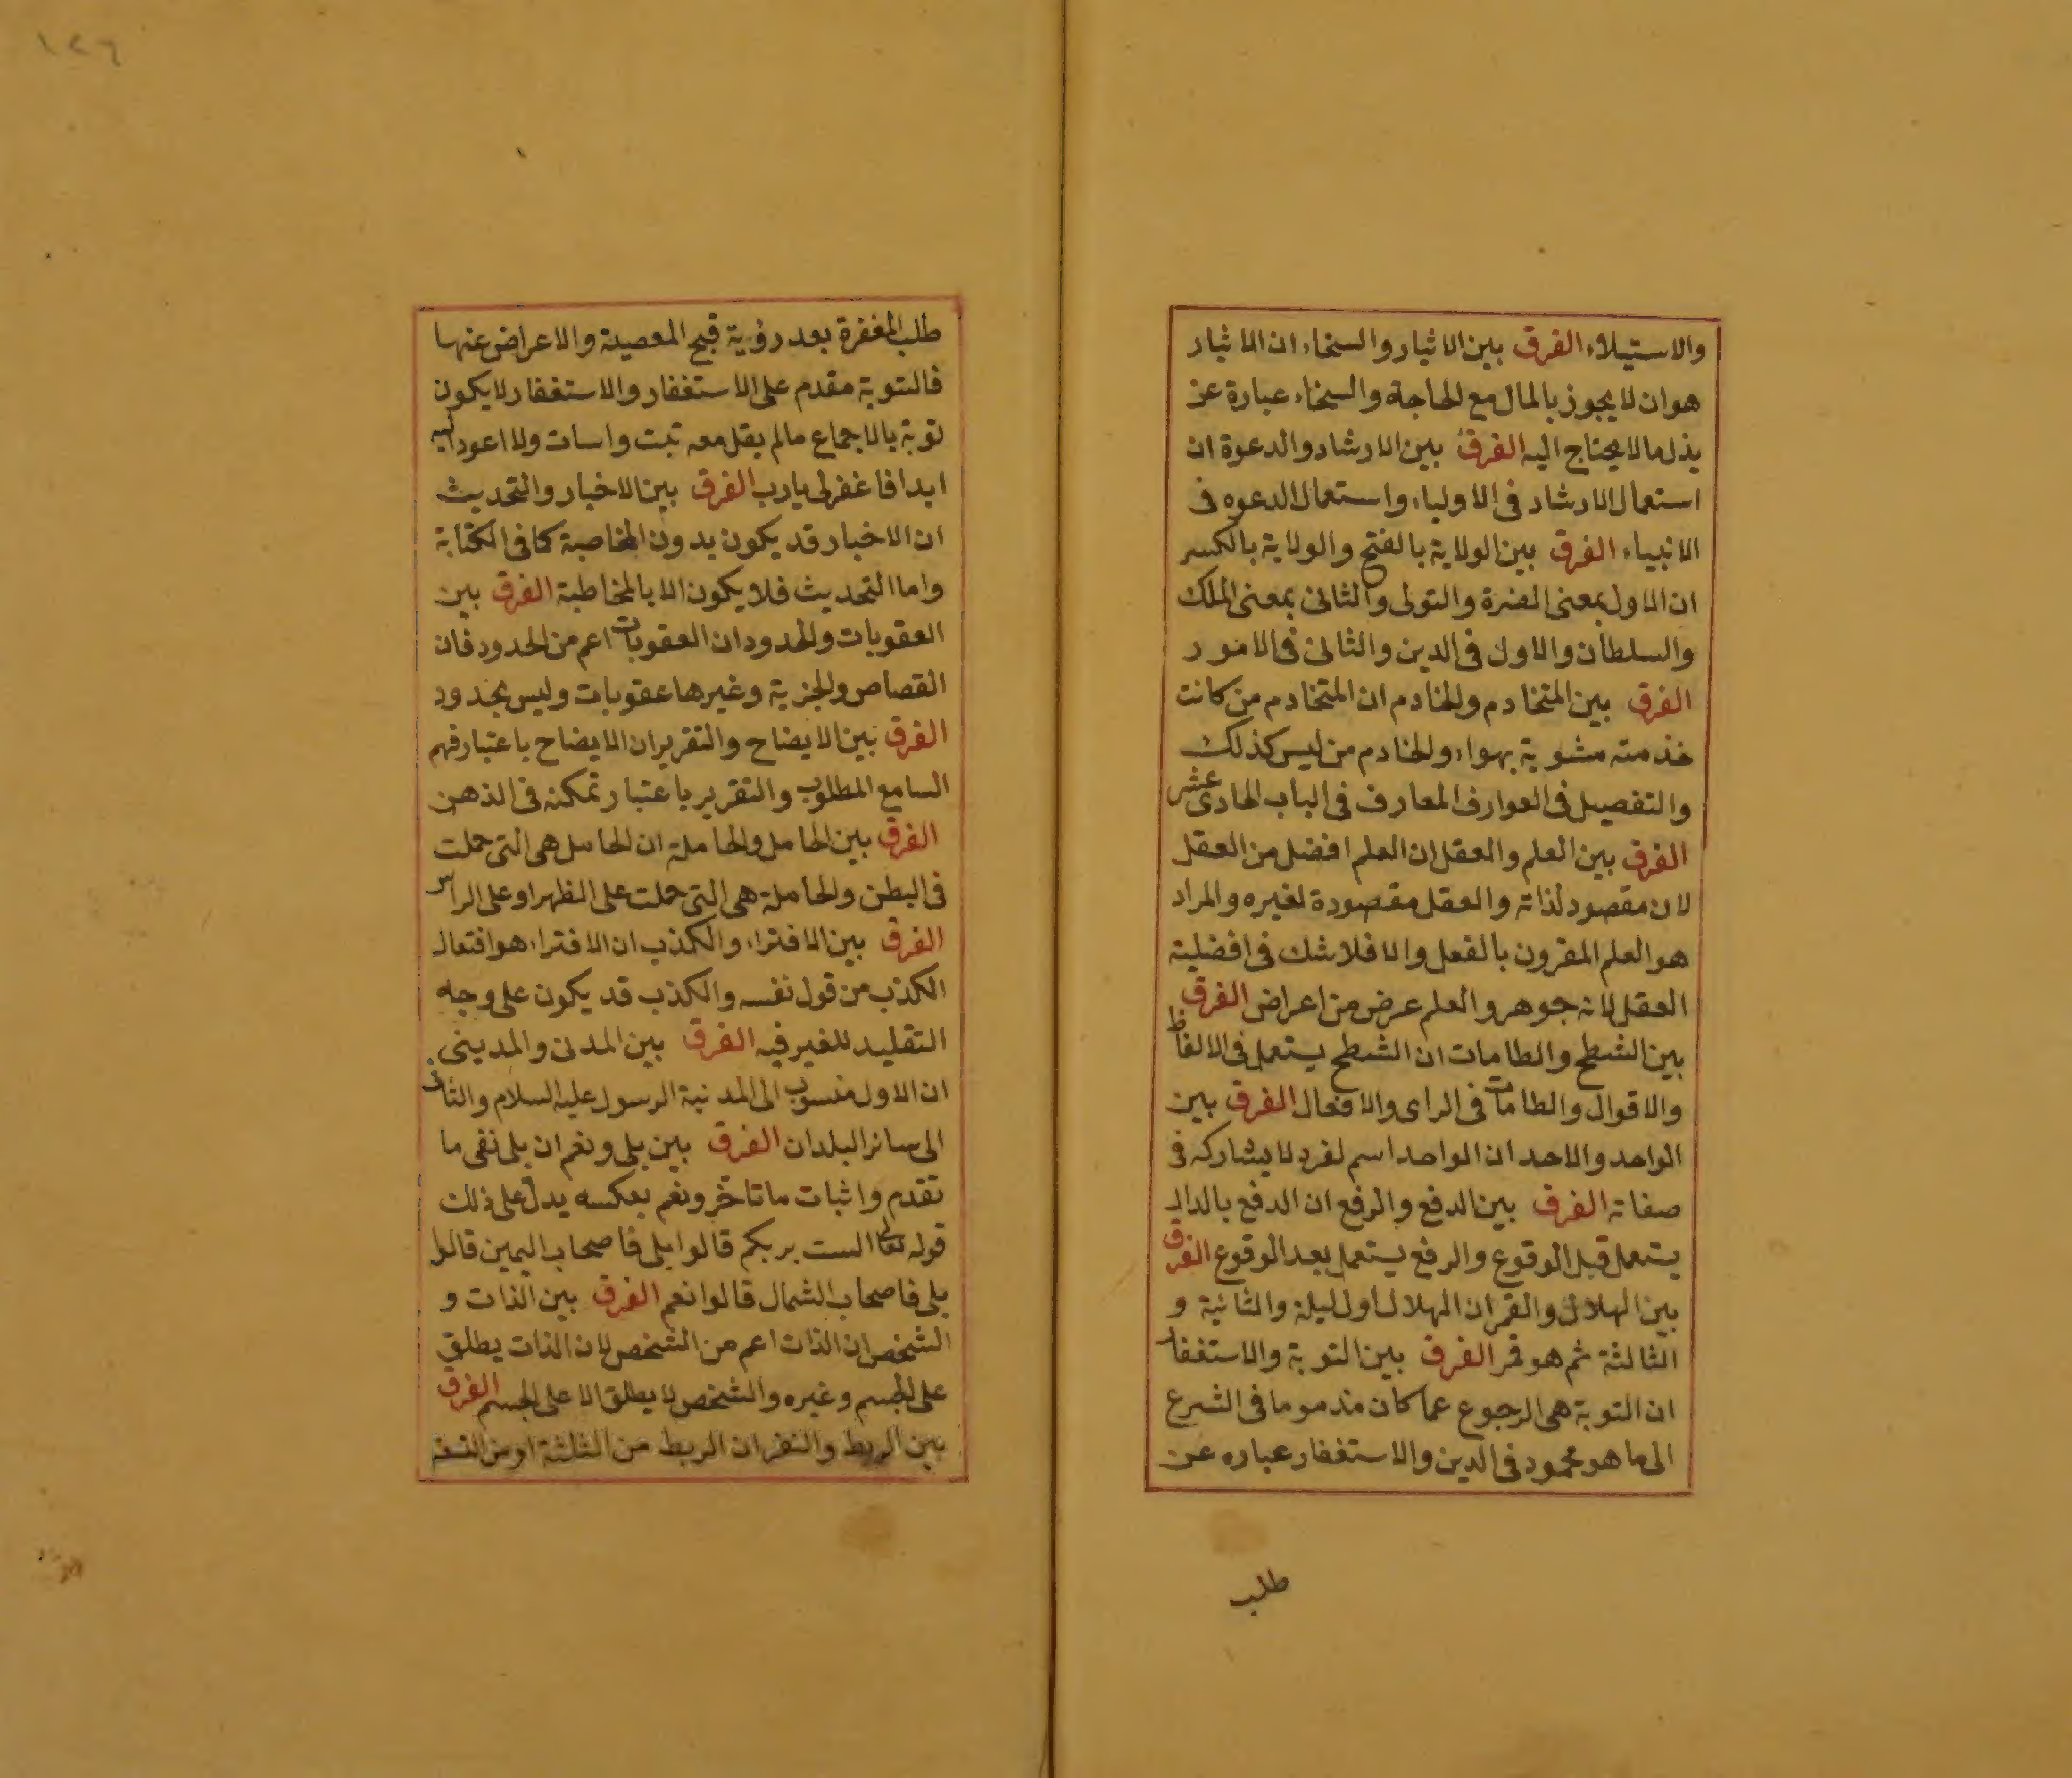 والاستيلاء الفرق بين الاثيار والسخاء ان الاثيار
هو ان لا يجوز بالمال مع الحاجة والسخاء عبارة عن
بذل ما لا يحتاج اليه الفرق بين الارشاد والدعوة ان
استعمال الارشاد فى الاولياء واستعمال الدعوه فى
الانبياء الفرق بين الولاية بالفتح والولاية بالكسر
ان الاول بمعنى النصرة والتولى والثانى بمعنى الملك
والسلطان والاول فى الدين والثانى فى الامور
الفرق بين المتخادم والخادم ان المتخادم من كانت
خذمته مشوية بهواء والخادم من ليس كذلك
والتفصيل فى العوارف المعارف فى الباب الحادى عشر
الفرق بين العلم والعقل ان العلم افضل من العقل
لان مقصود لذاته والعقل مقصودة لغيره والمراد
هو العلم المقرون بالفعل والا فلا شك فى افضلية
العقل لانه جوهر والعلم عرض من اعراض الفرق
بين الشطح والطامات ان الشطح يستعمل فى الالفاظ
والاقوال والطامات فى الراى والافعال الفرق بين
الواحد والاحد ان الواحد اسم لفرد لا يشاركه فى
صفاته الفرق بين الدفع والرفع ان الدفع بالدال
يستعمل قبل الوقوع والرفع يستعمل بعد الوقوع الفرق
بين الهلال والقمر ان الهلال اول ليلة والثانية و
الثالثة ثم هو قمر الفرق بين التوبة والاستغفار
ان التوبة هى الرجوع عما كان مذموما فى الشرع
الى ما هو محمود فى الدين والاستغفار عباره عن
طلب
١٢٦
طلب المغفرة بعد رؤية قبح المعصية والاعراض عنها
فالتوبة مقدم على الاستغفار والاستغفار لا يكون
توبة بالاجماع مالم يقل معه تبت واسات ولا اعود اليه
ابدا فاغفر لى يارب الفرق بين الاخبار والتحديث
ان الاخبار قد يكون بدون المخاصبة كما فى الكتابة
واما التحديث فلا يكون الا بالمخاطبة الفرق بين
العقوبات والحدود ان العقوبات اعم من الحدود فان
القصاص والجزية وغيرها عقوبات وليس بحدود
الفرق بين الايضاح والتقرير ان الايضاح باعتبار فهم
السامع المطلوب والتقرير باعتبار تمكنه فى الذهن
الفرق بين الحامل والحاملة ان الحامل هى التى حملت
فى البطن والحاملة هى التى حملت على الظهر او على الراس
الفرق بين الافتراء والكذب ان الافتراء هو افتعال
الكذب من قول نفسه والكذب قد يكون على وجه
التقليد للغير فيه الفرق بين المدنى والمدينى
ان الاول منسوب الى المدنية الرسول عليه السلام والثانى
الى سائر البلدان الفرق بين بلى ونعم ان بلى نفى ما
تقدم واثبات ما تاخر ونعم بعكسه يدل على ذلك
قوله تعالى الست بربكم قالوا بلى فاصحاب اليمين قالوا
بلى فاصحاب الشمال قالوا نعم الفرق بين الذات و
الشخص ان الذات اعم من الشخص لان الذات يطلق
على الجسم وغيره والشخص لا يطلق الا على الجسم الفرق
بين الربط والنفر ان الربط من الثلثة او من